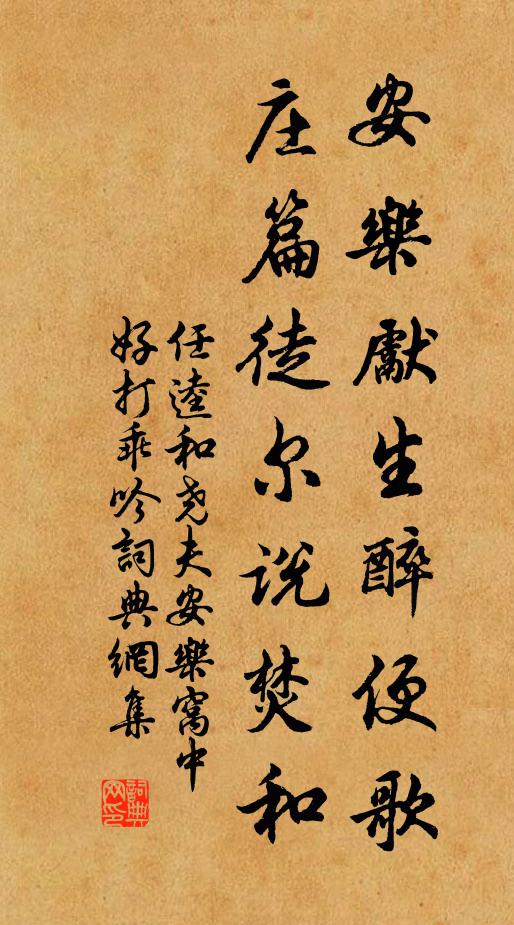 安樂獻生醉便歌
庄篇徒尔说焚和
任逵和尧夫安樂窩中
好打乖吟詞典網集
詞典
网印